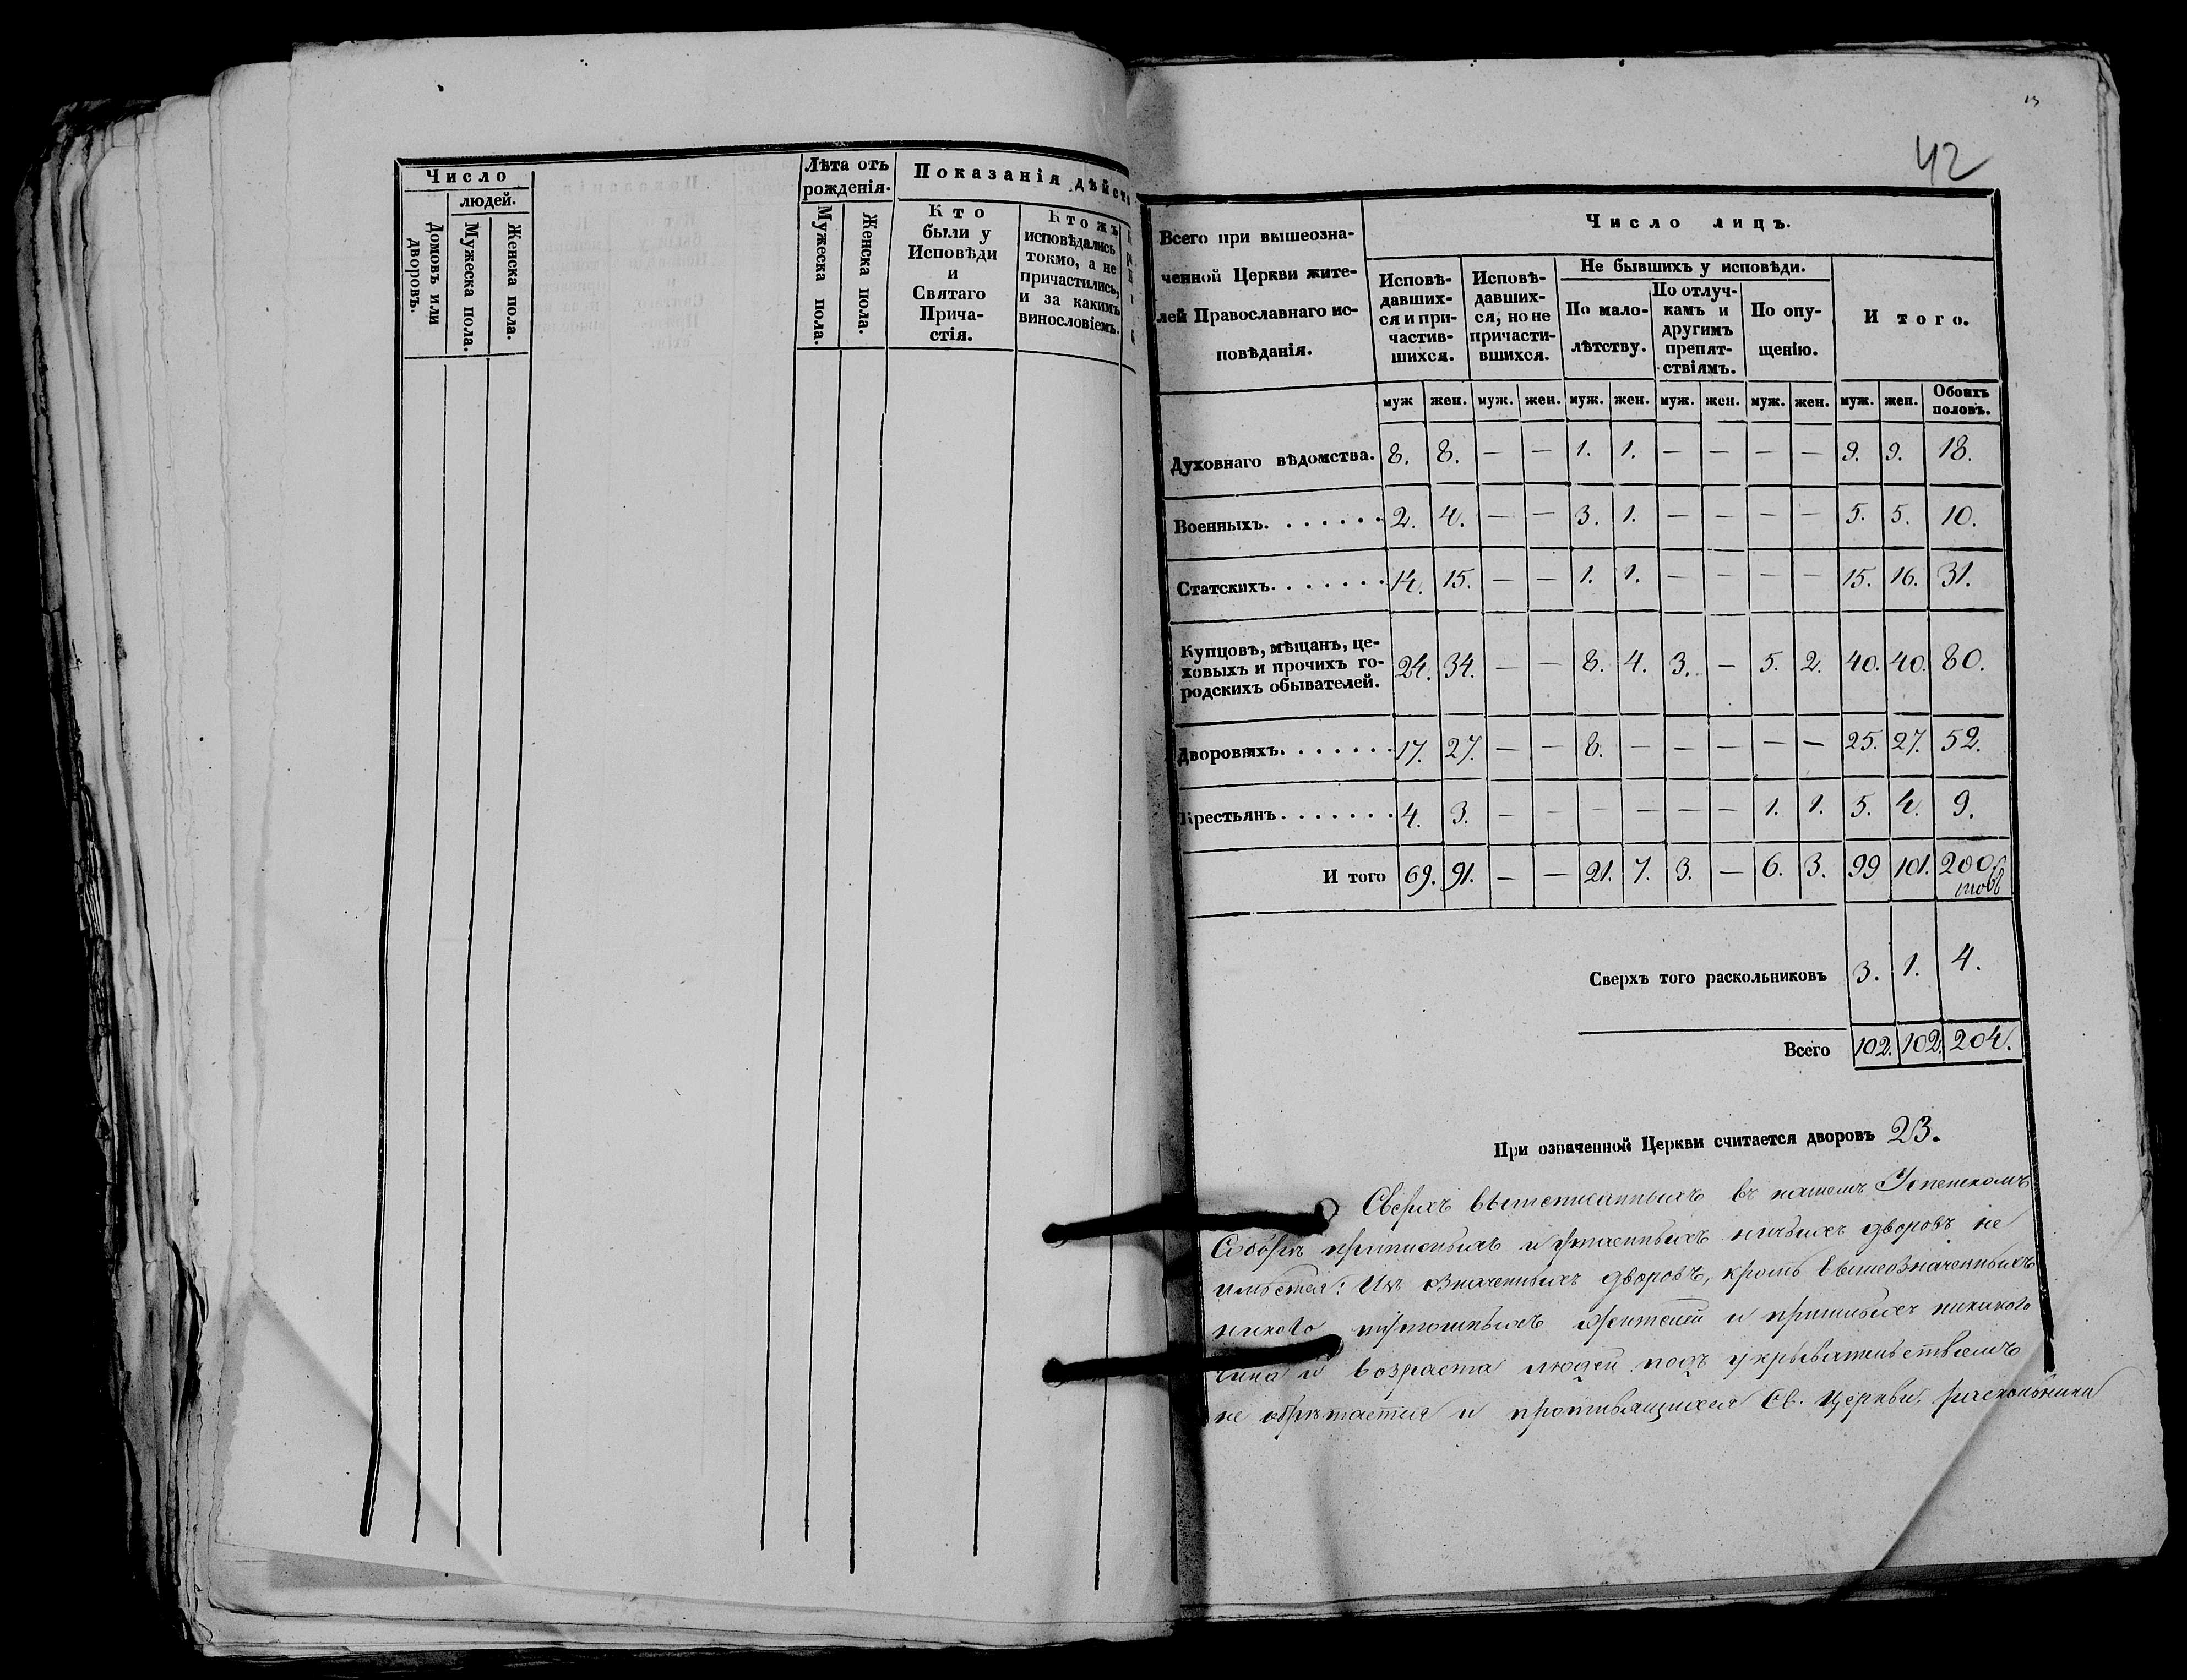 Число
людей.
Домовъ или дворовъ.
Мужеска пола.
Женска пола.
Лѣта отъ
рожденія.
Мужеска пола.
Женска пола.
Показанія дѣйст
Кто
были у
Исповѣди
и
Святаго
Прича-
стія.
Ктожъ
исповѣдались
токмо, а не
причастились,
и за какимъ
винословіемъ.
42
Всего при вышеозна-
ченной Церкви жите-
лей Православнаго ис-
повѣданія.
Число лицъ.
Исповѣ-
давших-
ся и при-
частив-
шихся.
Исповѣ-
давших-
ся, но не
причасти-
вшихся.
Не бывшихъ у исповѣди.
По мало-
лѣтству.
По отлуч-
камъ и
другимъ
препят-
ствіямъ.
По опу-
щенію.
И того.
муж жен. муж. жен. муж. жен. муж. жен. муж. жен. муж. жен. Обоихъ половъ.
Духовнаго вѣдомства. 8. 8. — — 1. 1. — — — — 9. 9. 18.
Военныхъ. . . . . . . 2. 4. — — 3. 1. — — — — 5. 5. 10.
Статскихъ. . . . . . . 14. 15. — — 1. 1. — — — — 15. 16. 31.
Купцовъ, мѣщанъ, це-
ховыхъ и прочихъ го-
родскихъ обывателей. 24. 34. — — 8. 4. 3. — 5. 2. 40. 40. 80.
Дворовыхъ. . . . . . . 17. 27. — — 8. — — — — — 25. 27. 52.
Крестьянъ . . . . . . . 4. 3. — — — — — — 1. 1. 5. 4. 9.
И того 69. 91. — — 21. 7. 3. — 6. 3. 99 101. 200
Сверхъ того раскольниковъ 3. 1. 4.
Всего 102. 102. 204.
При означенной Церкви считается дворовъ 23.
Сверхъ вышеписанныхъ въ нашемъ Успенскомъ
Соборѣ приписныхъ и ничьихъ дворовъ не
имѣется: Изъ означенныхъ дворовъ, кромѣ вышеозначенныхъ
никого жителей и пришлыхъ никакого
чина и возраста людей подъ укрывательствомъ
не обрѣтается и противящихся Св. Церкви, раскольники